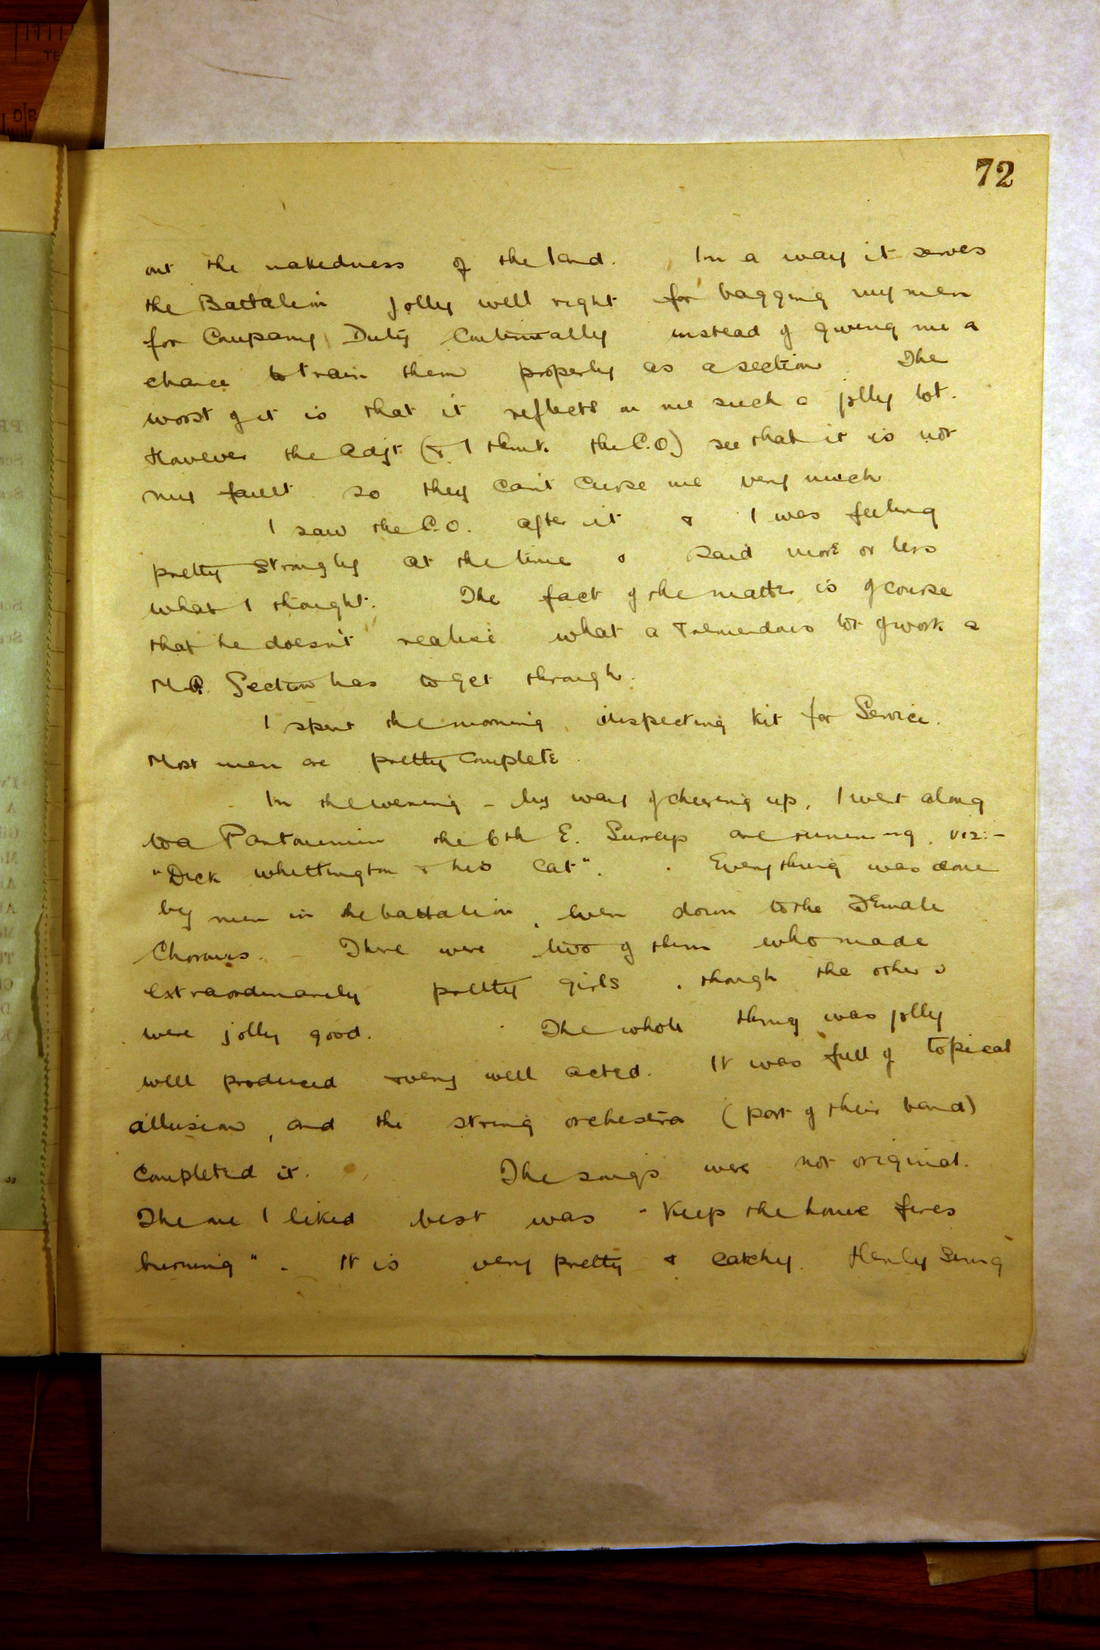 72
out the nakedness of the land. In a way it serves
the Battalion jolly well right for bagging my men
for Company Duty Continually instead of giving me a
chance to train them properly as a section. The
worst of it is that it reflects on me such a jolly lot.
However the Adjt (& I think the C.O) see that it is not
my fault so they can't curse me very much
I saw the C.O. after it & I was feeling
pretty strongly at the time & said more or less
what I thought. The fact of the matter is of course
that he doesn't realise what a tremendous lot of work a
M.G. Section has to get through.
I spent the morning inspecting kit for Service.
Most men are pretty complete.
In the evening - by way of cheering up, I went along
to a Pantomime the 6th E. Surreys are running, viz:-
"Dick Whittington & his Cat". Everything was done
by men in the battalion, even down to the Female
Chorus. There were two of them who made
extraordinarily pretty girls, though the others
were jolly good. The whole thing was jolly
well produced & very well acted. It was full of topical
allusion, and the string orchestra (part of their band)
completed it. The songs were not original.
The one I liked best was "Keep the home fires
burning". It is very pretty & catchy. Henly Sung